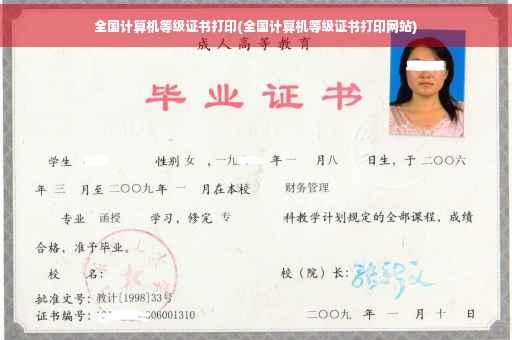 全国计算机等级证书打印(全国计算机等级证书打印网站)
成人高等教育
毕业证书
学生 性别 女 ，一九 年 一 月 八 日生，于 二〇〇六
年 三 月至 二〇〇九 年 一 月在本校 财务管理
专业 函授 学习，修完 专 科教学计划规定的全部课程，成绩
合格，准予毕业。
校 名： 校（院）长：
批准文号：教计[1998]33号
证书编号： 06001310 二〇〇九 年 一 月 十 日